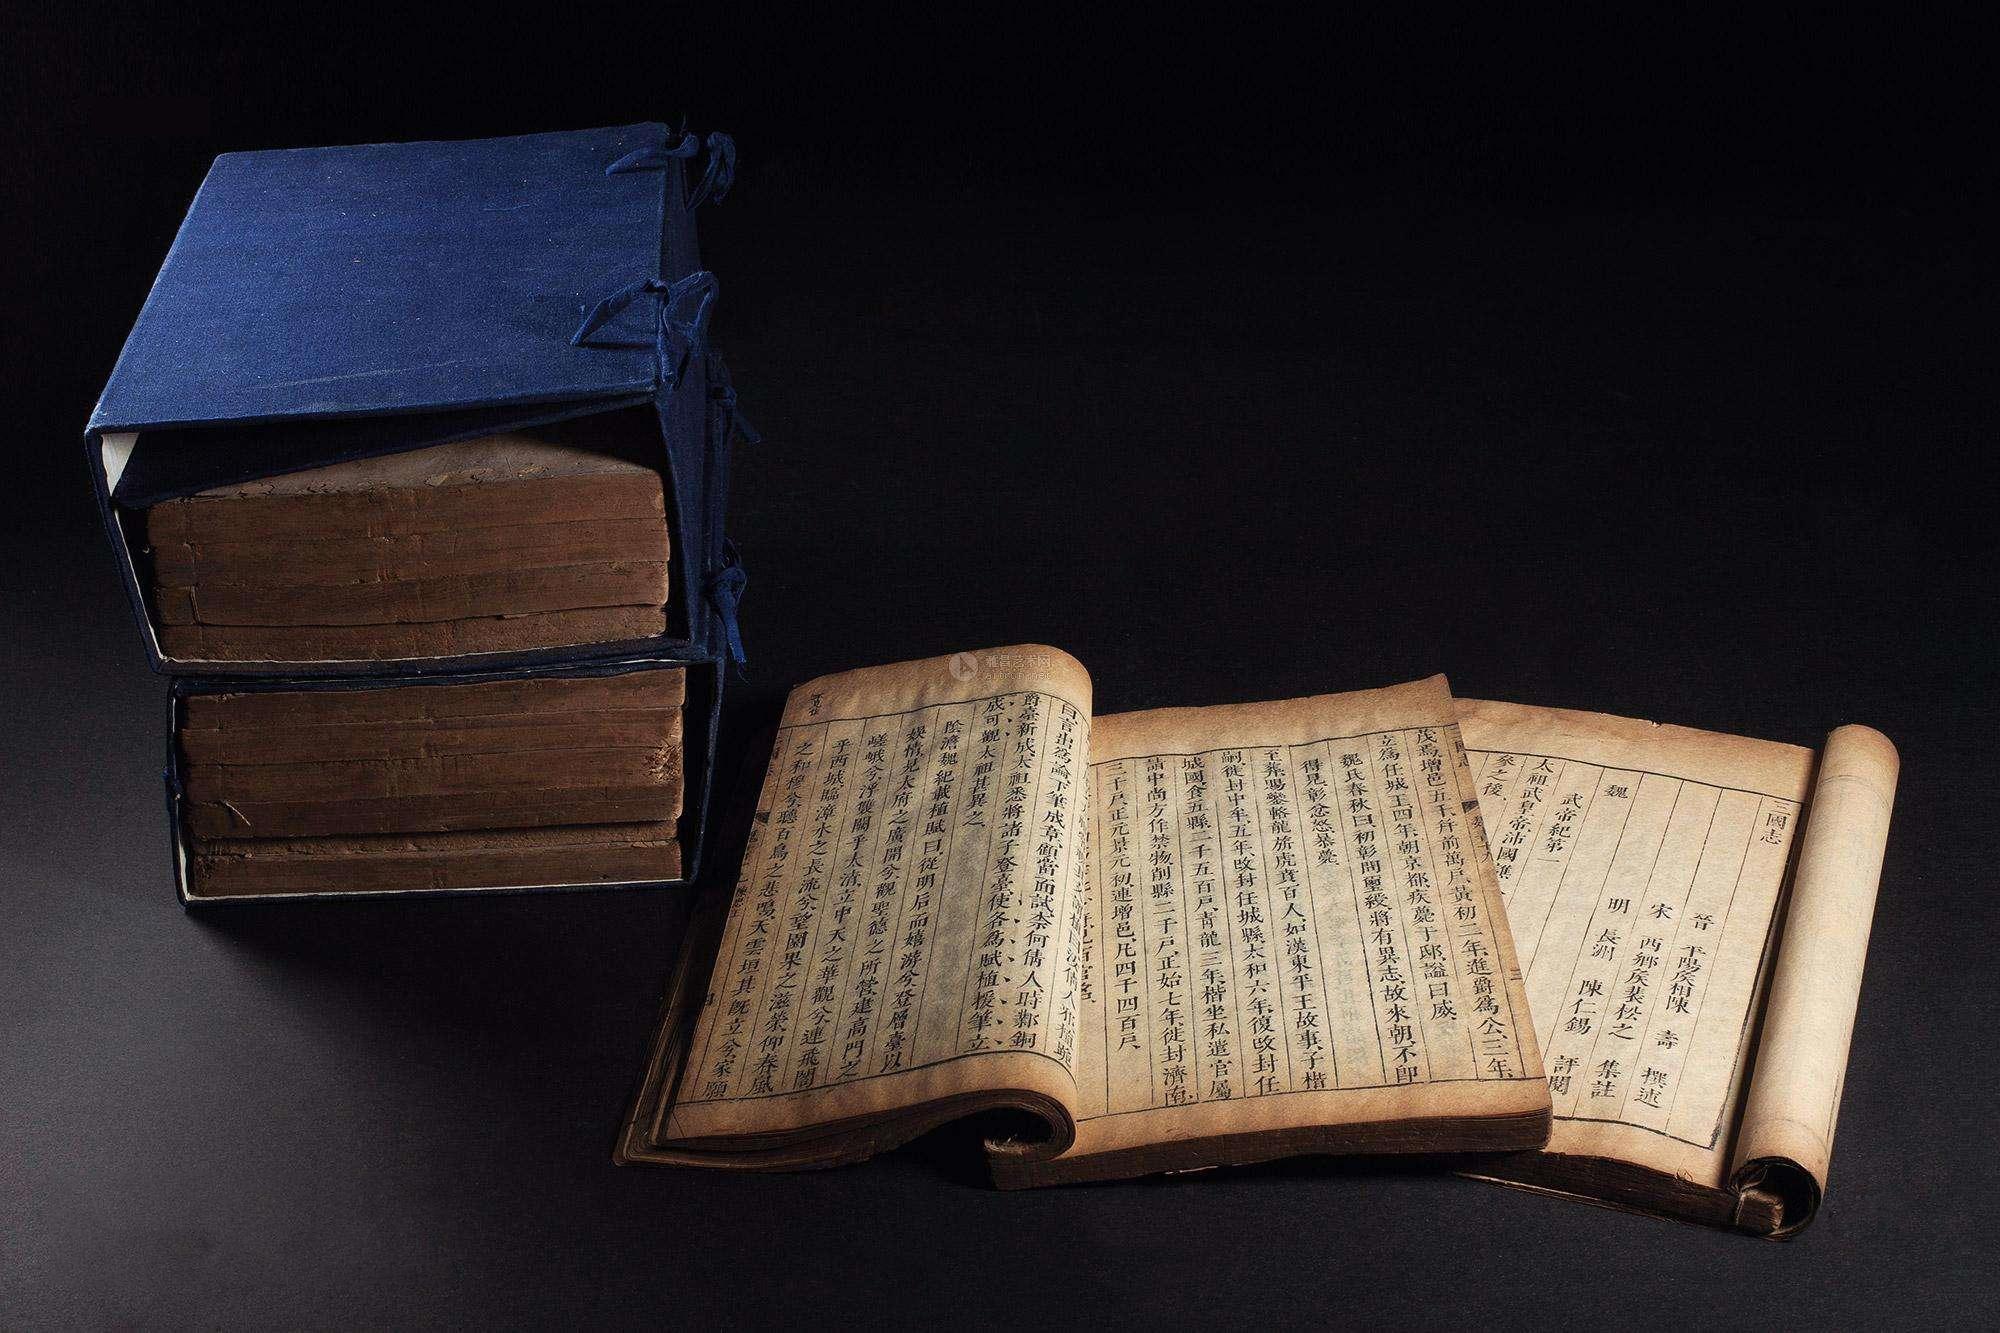 三國志
晉 平陽矦相陳 壽 撰述
宋 西鄉矦裴松之 集註
明 長洲 陳仁錫 評閱
魏
武帝紀第一
太祖武皇帝沛國譙
參之後
茂焉增邑五千幷前萬戶黃初二年進爵爲公三年
立爲任城王四年朝京都疾薨于邸謚曰威
魏氏春秋曰初彰問璽綬將有異志故來朝不卽
得見彰忿怒暴薨
至葬賜鑾輅龍旂虎賁百人如漢東平王故事子楷
嗣徙封中牟五年改封任城縣太和六年復改封任
城國食五縣二千五百戶靑龍三年楷坐私遣官屬
詣中尚方作禁物削縣二千戶正始七年徙封濟南
三千戶正元景元初連增邑凡四千四百戶
曰言出爲論下筆成章顧當面試柰何倩人時鄴銅
爵臺新成太祖悉將諸子登臺使各爲賦植援筆立
成可觀太祖甚異之
陰澹魏紀載植賦曰從明后而嬉游兮登層臺以
娛情見太府之廣開兮觀聖德之所營建高門之
嵯峨兮浮雙闕乎太淸立中天之華觀兮連飛閣
乎西城臨漳水之長流兮望園果之滋榮仰春風
之和穆兮聽百鳥之悲鳴天雲垣其旣立兮家願
雅昌艺术网
artron.net